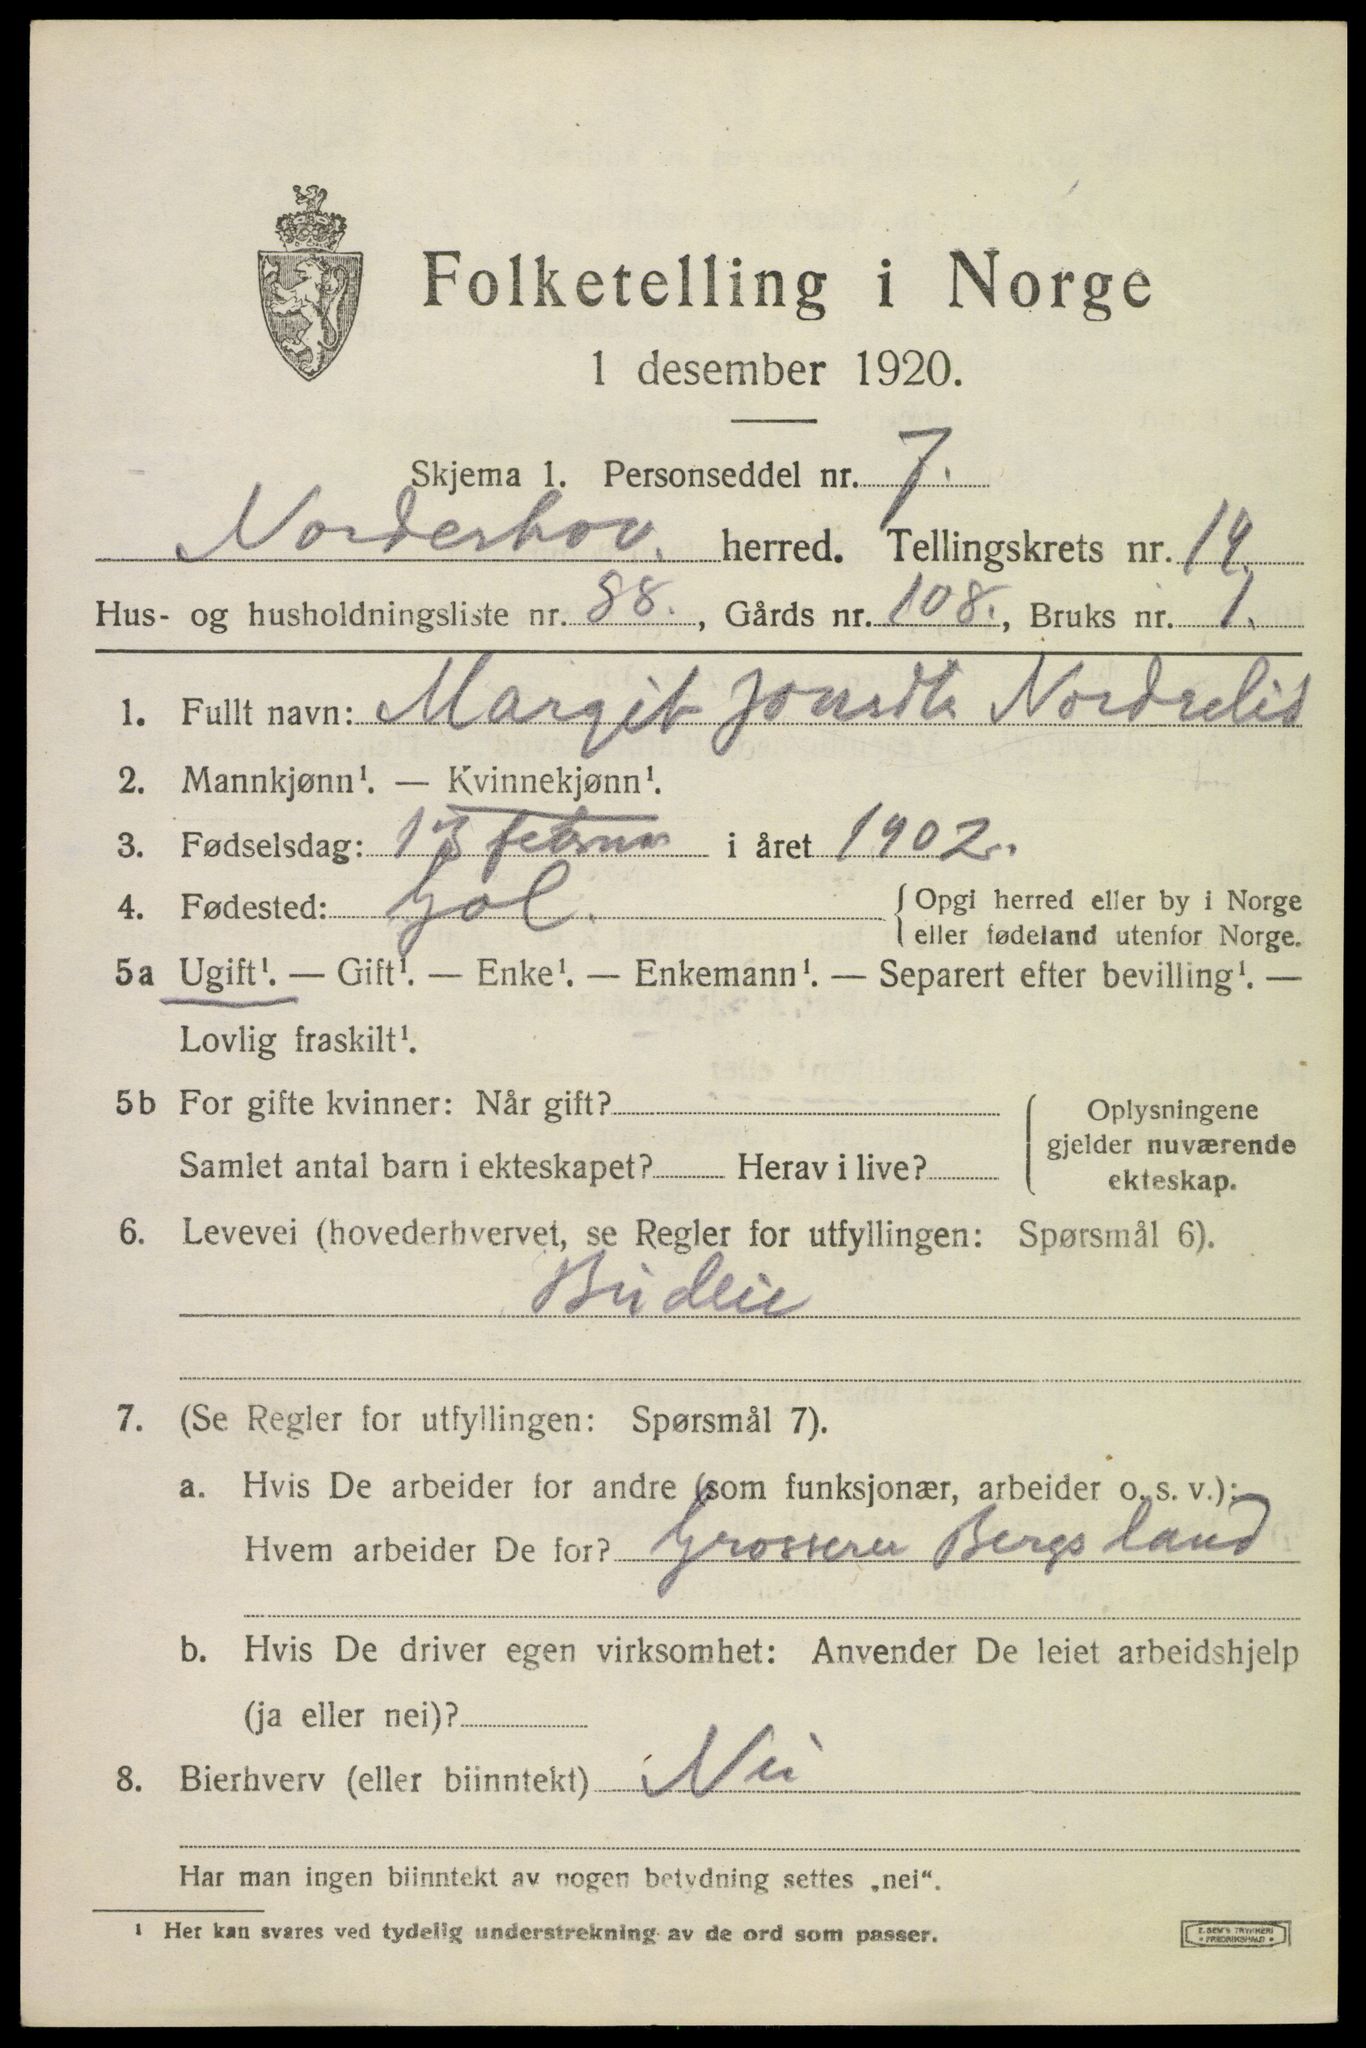 Folketelling i Norge
1 desember 1920.
Skjema 1. Personseddel nr. 7.
Norderhov. herred. Tellingskrets nr. 14.
Hus- og husholdningsliste nr. 88., Gårds nr. 108., Bruks nr. 1.
1. Fullt navn: Margit Jonsdtr Nordrelid
2. Mannkjønn¹. — Kvinnekjønn¹.
3. Fødselsdag: februar i året 1902.
4. Fødested: Gol. { Opgi herred eller by i Norge
eller fødeland utenfor Norge.
5a Ugift¹. — Gift¹. — Enke¹. — Enkemann¹. — Separert efter bevilling¹. —
Lovlig fraskilt¹.
5b For gifte kvinner: Når gift?
Samlet antal barn i ekteskapet? Herav i live?
Oplysningene
gjelder nuværende
ekteskap.
6. Levevei (hovederhvervet, se Regler for utfyllingen: Spørsmål 6).
Budeie
7. (Se Regler for utfyllingen: Spørsmål 7).
a. Hvis De arbeider for andre (som funksjonær, arbeider o. s. v.):
Hvem arbeider De for? Grosserer Bergsland
b. Hvis De driver egen virksomhet: Anvender De leiet arbeidshjelp
(ja eller nei)?
8. Bierhverv (eller biinntekt) Nei
Har man ingen biinntekt av nogen betydning settes „nei“.
¹ Her kan svares ved tydelig understrekning av de ord som passer.
E. SEM'S TRYKKERI
FREDRIKSHALD